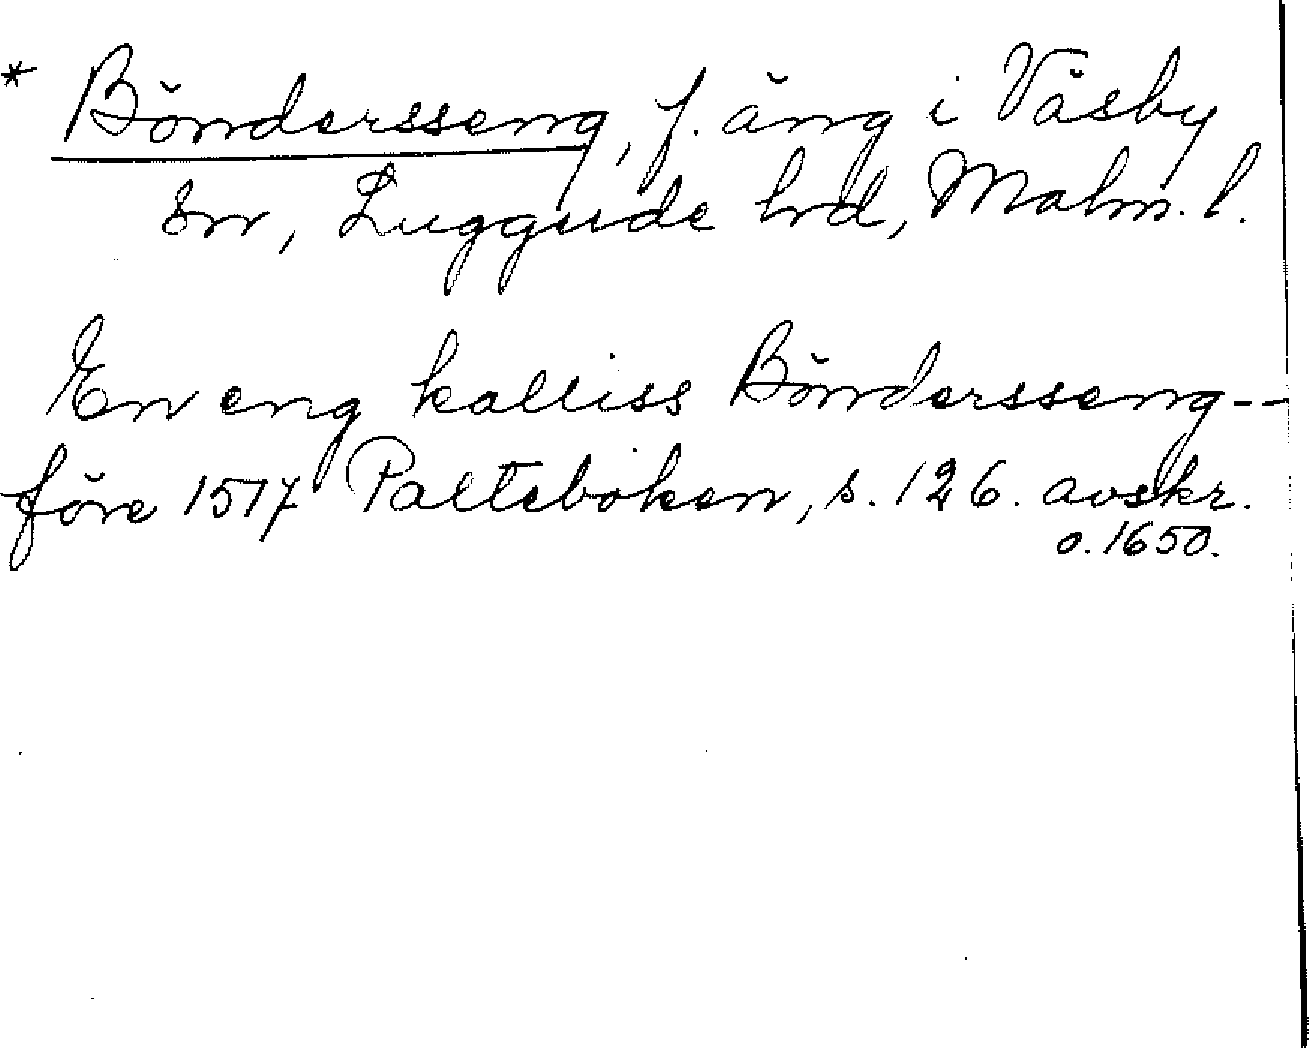 * Böndersseng, f. äng i Väsby
sn, Luggude hrd, Malm. l.
En eng kalliss Böndersseng--
före 1517 Palteboken, s. 126. avskr.
o. 1650.